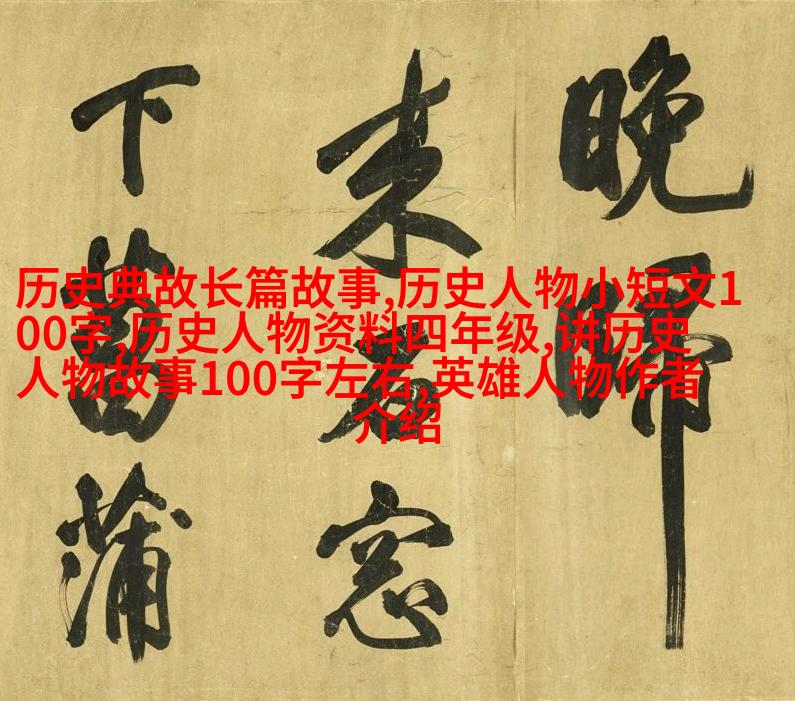 历史典故长篇故事,历史人物小短文1
00字,历史人物资料四年级,讲历史
人物故事100字左右,英雄人物作者
介绍
晚帰
来窓
下菖蒲